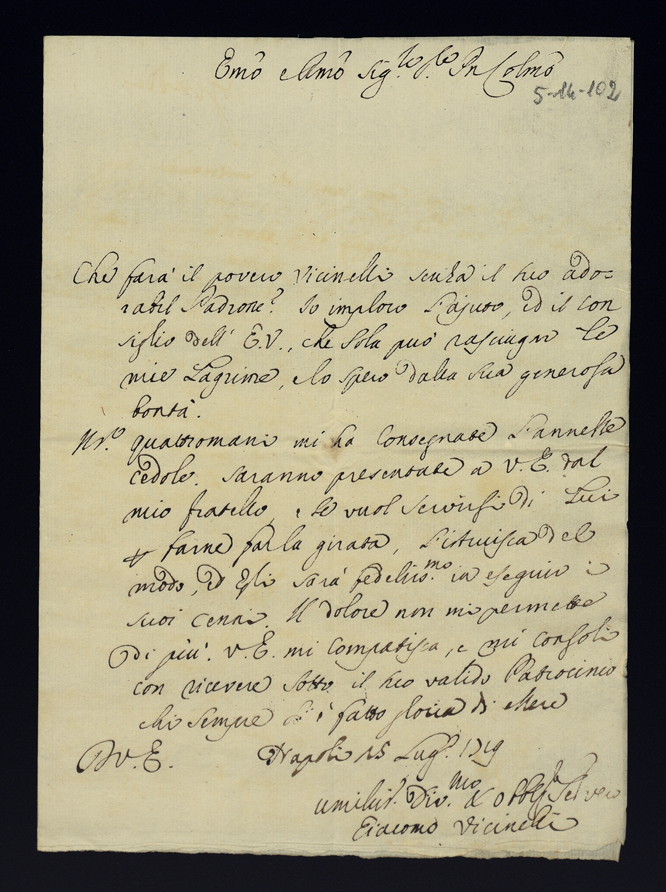 Emō e Rmō Sig.re P.re Pn Colmō
5-14-102
Che farà il povero Vicinelli senza il suo ado=
rabil Padrone? Io imploro l'ajuto, ed il con
siglio dell' E.V., che sola può rasciugar le
mie Lagrime, e lo spero dalla sua generosa
bontà.
Mr.e Quattromani mi ha Consegnate l'annesse
cedole. Saranno presentate a V.E. dal
mio fratello, e se vuol servirsi di Lui
farne far la girata, l'istruisca del
modo, ed Egli sarà fedeliss.mo in eseguir i
suoi cenni. Il dolore non mi permette
di più. V.E. mi Compatisca, e mi consoli
con ricevere sotto il suo valido Patrocinio
chi sempre si è fatto gloria di essere
D V.E. Napoli 15 Lug.o 1719
umiliss. Div.mo ed obblig. Servo
Giacomo Vicinelli